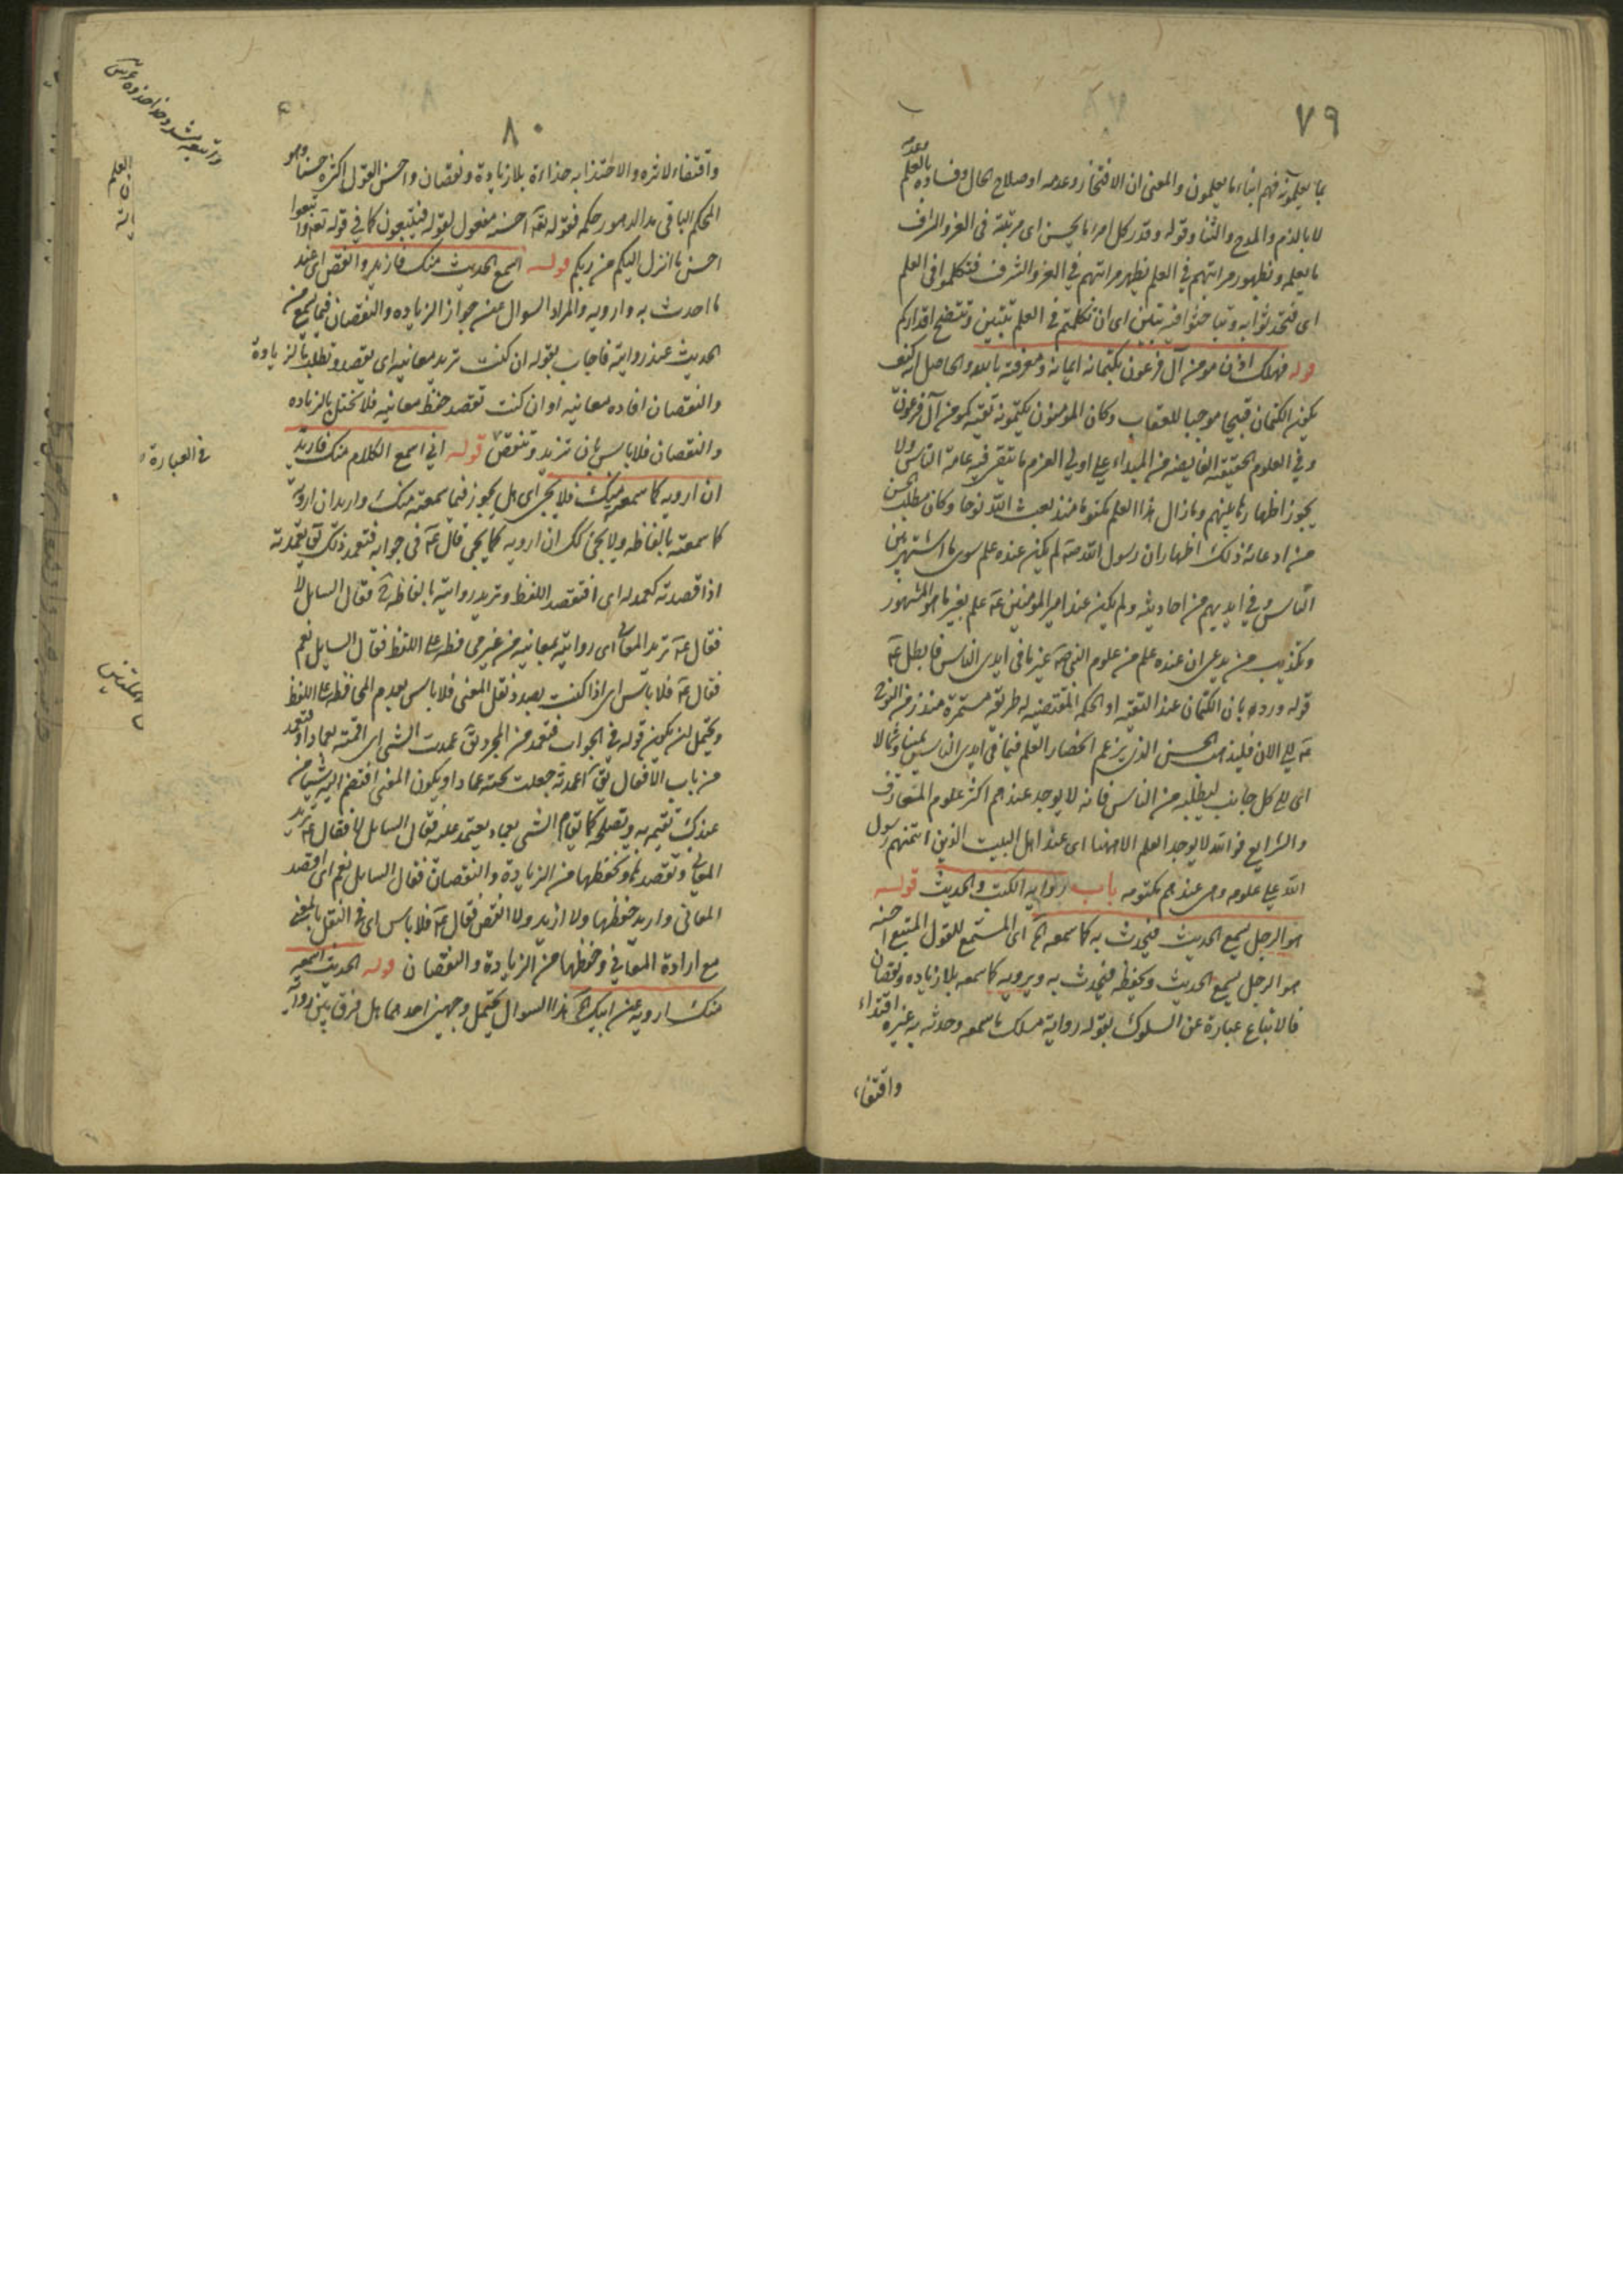 ٧٩
بما يعلمونه فهم ابناء ما يعلمون والمعنى ان الافتخار وعدمه او صلاح الحال وفساده بالعلم وعدمه
لا بالذم والمدح والثنا وقوله وقدر كل امرء ما يحسن اى مرتبته فى العز والشرف
ما يعلمه وبظهور مراتبهم في العلم يظهر مراتبهم في العز والشرف فتكلموا فى العلم
اى فتحدثوا به وتباحثوا فيه تبين اى ان تكلمتم في العلم تتبين وتتضح اقداركم
قوله فهلك اذن مومن آل فرعون بكتمانه ايمانه ومعرفته بالله والحاصل انه كيف
يكون الكتمان قبيحا موجبا للعقاب وكان المومنون يكتمونه تقية كمومن آل فرعون
وفي العلوم الحقيقية الفايضه من المبداء على اولي العزم ما يتقى فيه عامة الناس ولا
يجوز اظهارها عنهم وما زال هذا العلم مكتوما منذ بعث الله نوحا وكان مطلب الحسن
من ادعائه ذلك اظهار ان رسول الله صه لم يكن عنده علم سوى ما اشتهر بين
الناس وفي ايديهم من احاديثه ولم يكن عند امير المومنين عه علم بغير ما هو المشهور
وتكذيب من يدعى ان عنده علم من علوم النبى صه غير ما فى ايدى الناس فابطل عه
قوله ورده بان الكتمان عند التقيه او الحكمه المقتضيه له طريقه مستمرة منذ زمن النوح
عه الى الان فليذهب الحسن الذى يزعم انحصار العلم فيما فى ايدى الناس يمينا وشمالا
اى الى كل جانب ليطلبه من الناس فانه لا يوجد عندهم اكثر علوم المتعارف
والشرايع فوالله لا يوجد العلم الا ههنا اى عند اهل البيت الذين ائتمنهم رسول
الله على علومه وهى عندهم مكتومه باب رواية الكتب والحديث قوله
هو الرجل يسمع الحديث فيحدث به كما سمعه الخ اى المستمع للقول المتبع احسنه
هو الرجل يسمع الحديث ويحفظه فيحدث به ويرويه كما سمعه بلا زياده ونقصان
فالاتباع عبارة عن السلوك بقوله رواية مسلك ما سمعه وحدثه به غيره اقتداء
واقتفاء
٨٠
واقتفاء لاثره والاحتذا به حذاءه بلا زيادة ونقصان واحسن القول اكثره حسنا وهو
المحكم الباقى مدى الدهور حكمه فقوله تعه احسنه مفعول لقوله فيتبعون كما في قوله تعه واتبعوا
احسن ما انزل اليكم من ربكم قوله اسمع الحديث منك فازيد وانقص اى عند
ما احدث به وارويه والمراد السوال عن جواز الزياده والنقصان فيما يسمع من
الحديث عند روايته فاجاب بقوله ان كنت تريد معانيه اى يقصد ويطلب بالزيادة
والنقصان افاده معانيه او ان كنت تقصد حفظ معانيه فلا تختل بالزياده
والنقصان فلا باس بان تزيد وتنقص قوله اني اسمع الكلام منك فاريد
ان ارويه كما سمعته منك فلا يجئ اى هل يجوز فيما سمعته منك واريد ان ارويه
كما سمعته بالفاظه ولا يجئ لك ان ارويه كما يجى قال عه في جوابه فتعمد ذلك يق تعمدته
اذا قصدته كعمد له اى افتقصد اللفظ وتريد روايته بالفاظه فقال السايل لا
فقال عه تريد المعانى اى روايته بمعانيه من غير محافظه على اللفظ فقال السايل نعم
فقال عه فلا باس اى اذا كنت بصدد نقل المعنى فلا باس بعدم المحافظه على اللفظ
ويحتمل ان يكون قوله في الجواب فتعمد من المجرد يق عمدت الشى اى اقمته بعماد او تعمد
من باب الافعال يق اعمدته جعلت تحته عمادا ويكون المعنى افتضم اليه شيا من
عندك تقيمه به وتصلحه كما يقام الشى بعماد يعتمد عليه فقال السايل لا فقال عه تريد
المعانى وتقصدها وتحفظها من الزيادة والنقصان فقال السايل نعم اى اقصد
المعانى واريد حفظها ولا ازيد ولا انقص فقال عه فلا باس اى في النقل بالمعنى
مع ارادة المعاني وحفظها من الزيادة والنقصان قوله الحديث اسمعه
منك ارويه عن ابيك الخ هذا السوال يحتمل وجهين احدهما هل فرق بين رواية
العلم
في العبارة